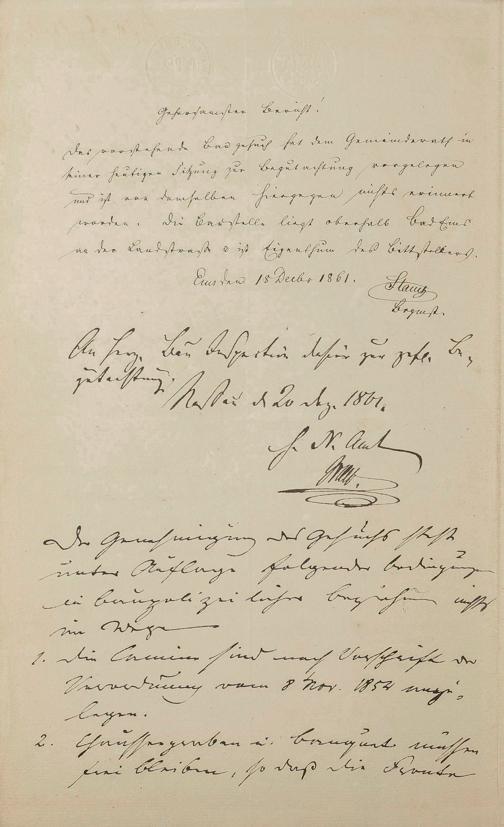 Gehorsamster Bericht!
Das vorstehende Baugesuch hat dem Gemeinderath in
seiner heutigen Sitzung zur Begutachtung vorgelegen
und ist von demselben hiergegen nichts erinnert
worden. Die Baustelle liegt oberhalb Bad Ems
an der Landstraße & ist Eigenthum des Bittstellers.
Ems den 18 Decbr 1861.
Stang
Brgmst.
An Herz. Bau Inspection dahier zur gefl. Be-
gutachtung.
Nassau d 20 dez. 1861.
H. N. Amt
Der Genehmigung des Gesuchs steht
unter Auflage folgender Bedingungen
in baupolizeilicher Beziehung nichts
im Wege
1. Die Camine sind nach Vorschrift der
Verordnung vom 8 Nov. 1854 anzu-
legen.
2. Chausseegraben u. Banquet müssen
frei bleiben, so daß die Fronte